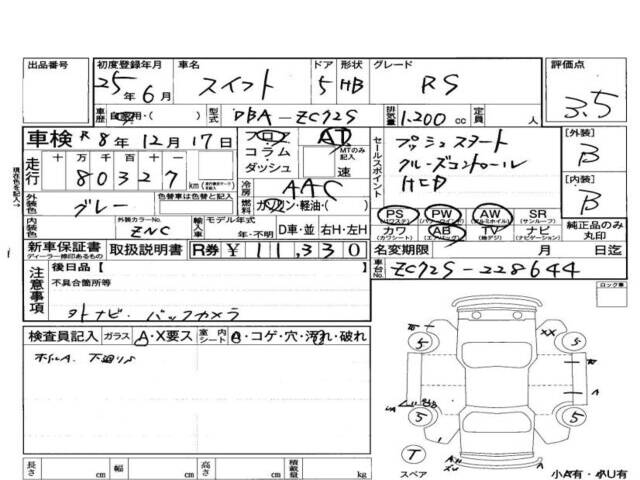 出品番号 初度登録年月 車名 ドア 形状 グレード 評価点
25年6月 スイフト 5 HB RS 3.5
車歴 自家用・( ) 型式 DBA-ZC72S 排気量 1.200 cc 定員 人
車検 R8年12月17日 フロア コラム ダッシュ AT MTのみ記入 速
セールスポイント プッシュスタート
クルーズコントロール
HID
[外装] B
[内装] B
現在色を記入→
走行 十万 万 千 百 十 一
80327 km
冷房 AAC
外装色 グレー 色替車は色替と記入 燃料 ガソリン・軽油・( )
内装色 外装カラーNo. ZNC 輸入車 モデル年式 年・不明 D車・並 右H・左H
PS (パワステ) PW (パワーウインドウ) AW (アルミホイル) SR (サンルーフ)
カワ (カワシート) AB (エアバッグ) TV (地デジ) ナビ (ナビゲーション)
純正品のみ丸印
新車保証書 ディーラー捺印あるもの 取扱説明書 R券 ¥11,330 名変期限 月 日迄
車台No. ZC72S-228644
注意事項 後日品【 】
不具合箇所等
外ナビ. バックカメラ
ロック車
検査員記入 ガラス A・X要ス 室内シート A・コゲ・穴・汚れ・破れ
ホイルA. 下廻りS
XX
5 5
A
5 5
T
スペア 小A有・小U有
長さ cm 幅 cm 高さ cm 積載量 kg